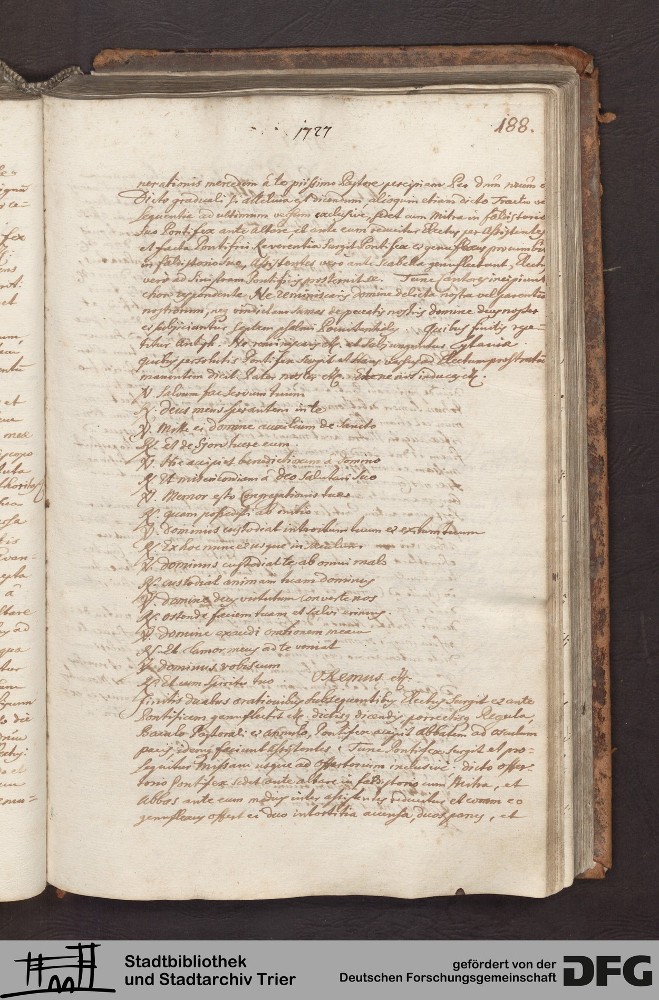 1727
188.
nerationis mercedem à te piissimo Pastore percipiam. Per d n̄m n̄rum
Dicto graduali si alleluia est dicendum alioquin etiam dicto Tractu vel
sequentia ad ultimum versum exclusive, sedet cum Mitra in faldistorio
suo Pontifex ante altare et ante eum reducitur Electus per Assistentes
et facta Pontifici Reverentia surgit Pontifex et genuflexus procumbit
in faldistorio suo, Assistentes vero ante scabella genuflectunt, Electus
vero ad sinistram Pontificis prosternit se. Tunc Cantores incipiunt
choro respondente. Ne reminiscaris domine delicta nostra vel parentum
nostrorum, neq vindictam sumas de peccatis nostris domine deus noster
et subjiciuntur septem psalmi Poenitentiales. Quibus finitis repe=
titur Antiph: Ne reminiscaris &c. et
quibus persolutis Pontifex surgit et stans versus ad Electum prostratum
manentem dicit Pater noster &c. Et ne nos inducas &c.
V. Salvum fac servum tuum
R. deus meus sperantem in te
V. Mitte ei domine auxilium de Sancto
R. Et de Syon tuere eum
V. Hic accipiet benedictionem à domino
R. Et misericordiam à deo Salutari suo
V. Memor esto Congregationis tuae
R. quam possedisti ab initio
V. dominus custodiat introitum tuum et exitum tuum
R. Ex hoc nunc et usque in saeculum
V. dominus custodiat te ab omni malo
R. custodiat animam tuam dominus
V. domine deus virtutum converte nos
R. ostende faciem tuam et salvi erimus
V. domine exaudi orationem meam
R. Et Clamor meus ad te veniat
V. dominus vobiscum
R. Et cum Spiritu tuo. ORemus &c.
Finitis duabus orationibus subsequentibus Electus surgit et ante
Pontificem genuflectit &c. dictisq dicendis porrectisq Regula,
Baculo Pastorali et annulo, Pontifex accipit abbatem ad osculum
pacis idemq faciunt assistentes. Tunc Pontifex surgit et pro=
sequitur Missam usque ad offertorium inclusive. dicto offer=
torio Pontifex sedet ante altare in faldistorio cum Mitra, et
Abbas ante eum medius inter assistentes reducitur et coram eo
genuflexus offert ei duo intortitia accensa, duos panes, et
Stadtbibliothek
und Stadtarchiv Trier
gefördert von der
Deutschen Forschungsgemeinschaft
DFG